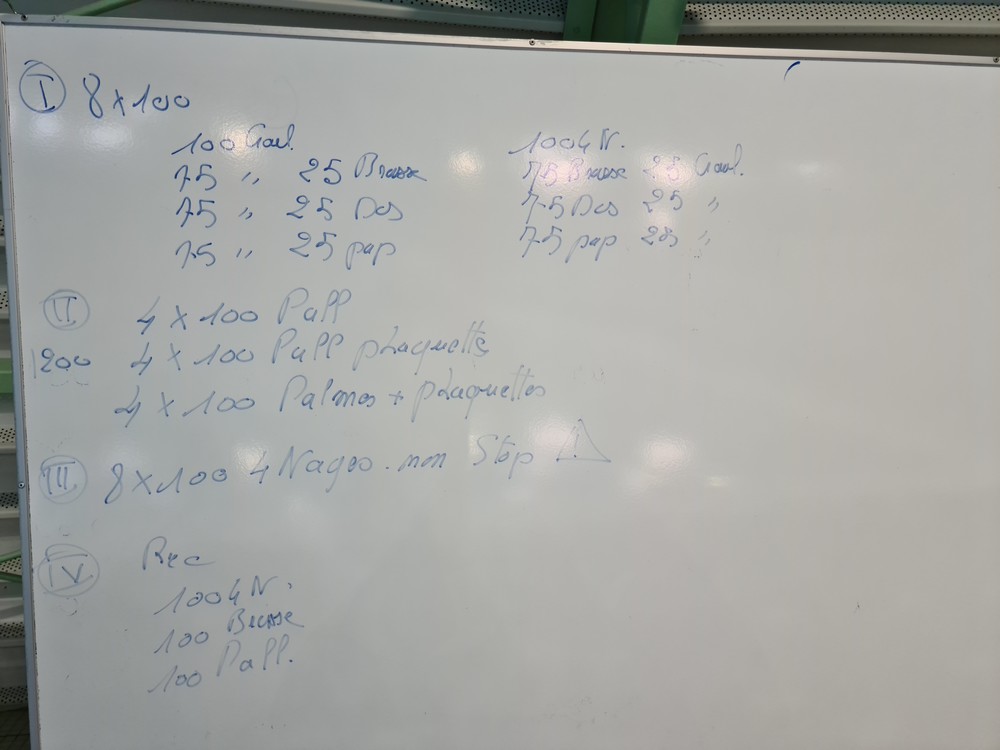 I 8 x 100
100 Crawl.
75 " 25 Brasse
75 " 25 Dos
75 " 25 pap
100 4 N.
75 Brasse 25 Crawl.
75 Dos 25 "
75 pap 25 "
II 4 x 100 Pull
1200 4 x 100 Pull plaquettes
4 x 100 Palmes + plaquettes
III 8 x 100 4 Nages non Stop !
IV Rec
100 4 N.
100 Brasse
100 Pull.